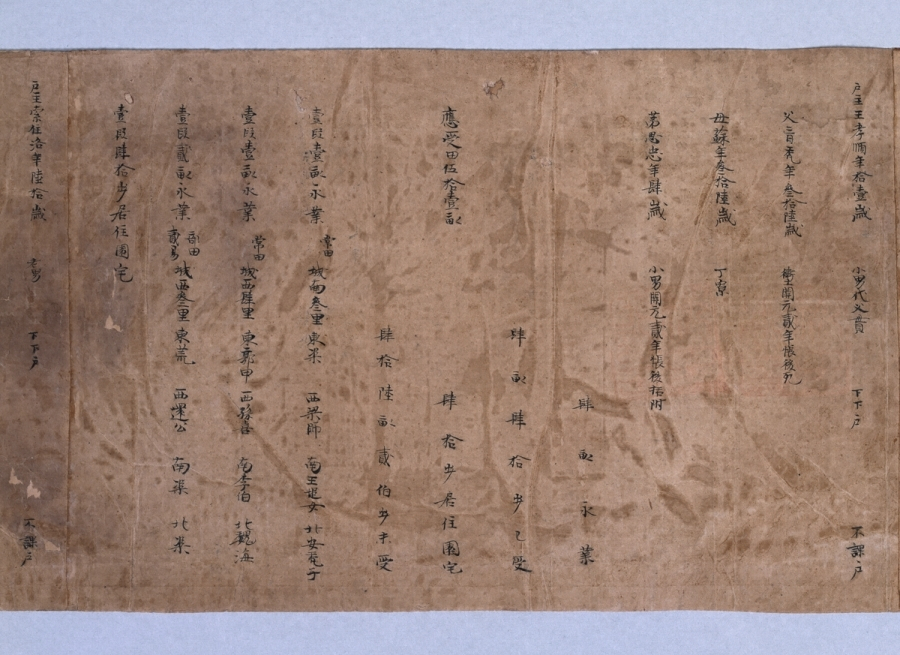 戶主王孝順年拾壹歲 小男代父貫 下下戶 不課戶
父盲禿年叁拾陸歲 衛士開元貳年帳後死
母蘇年叁拾陸歲 丁寡
弟思忠年肆歲 小男開元貳年帳後括附
肆畝永業
應受田伍拾壹畝 肆畝肆拾步已受
肆拾步居住園宅
肆拾陸畝貳伯步未受
壹段壹畝永業 常田 城南叁里 東渠 西梁師 南王 北安
壹段壹畝永業 常田 城西里 東申 西 南李伯 北魏海
壹段貳畝永業 部田貳易 城西叁里 東荒 西公 南渠 北渠
壹段肆拾步居住園宅
戶主索住洛年陸拾歲 老男 下下戶 不課戶